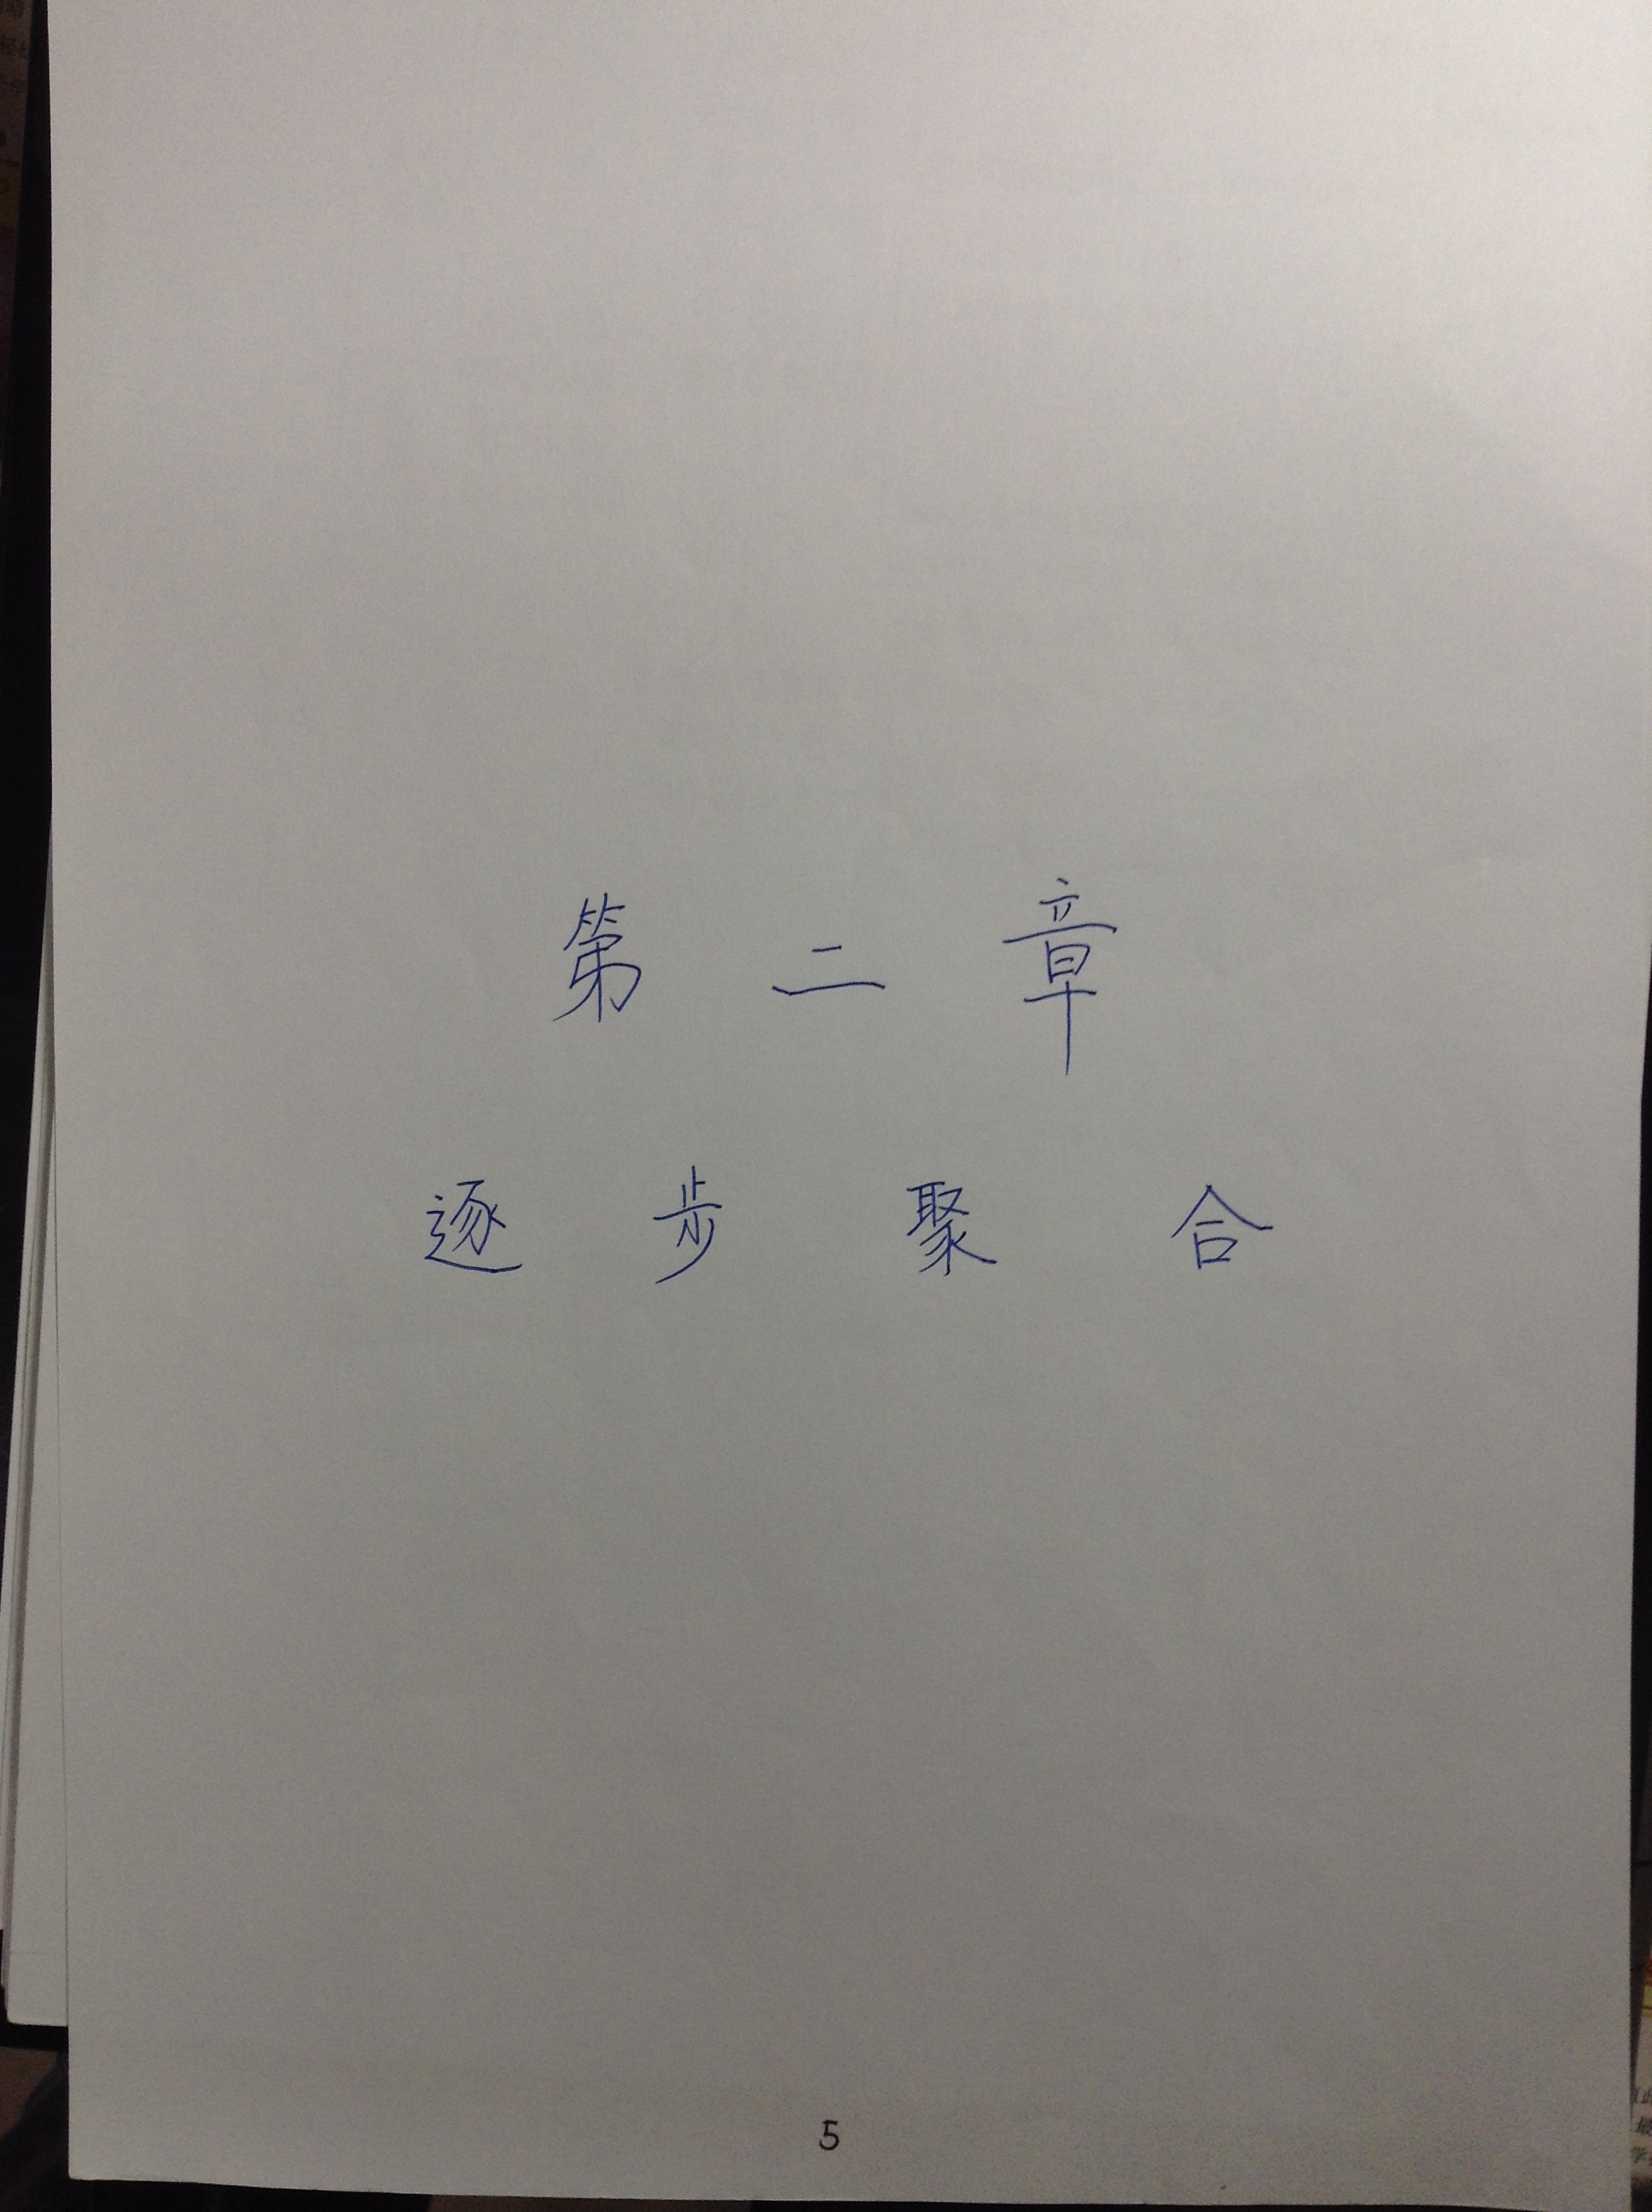 第二章
逐步聚合
5